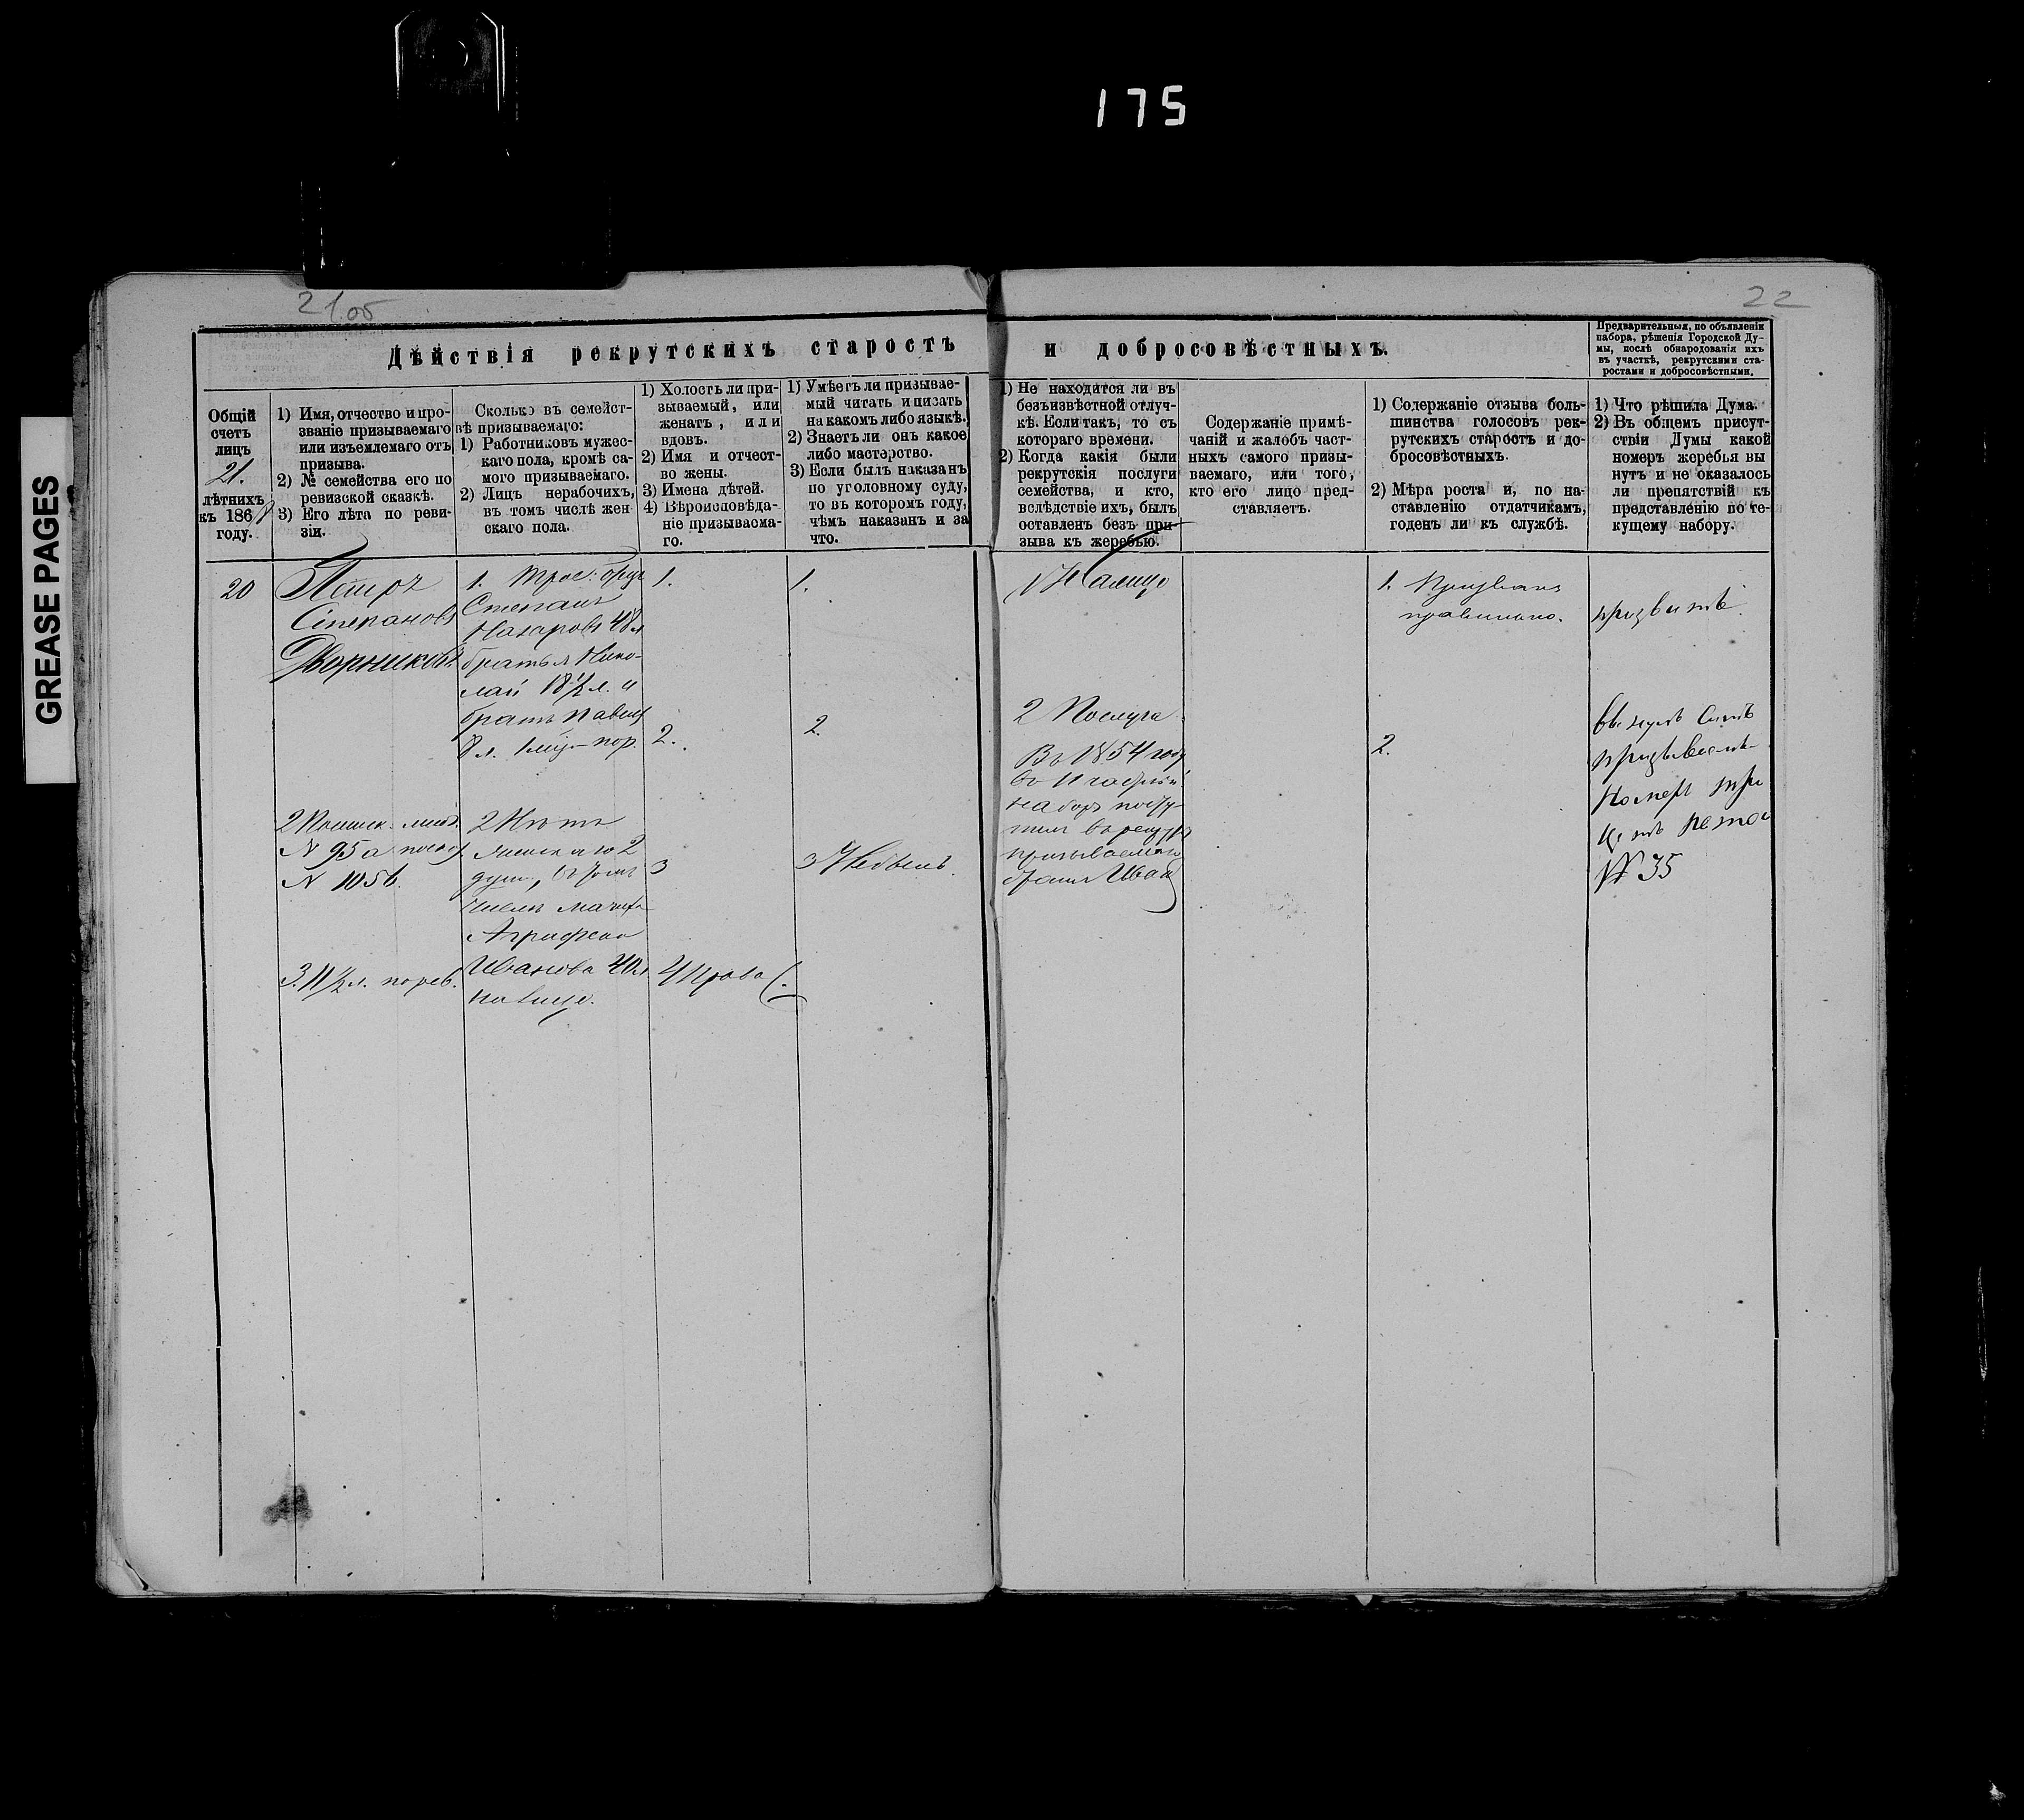 175
GREASE PAGES
21 об
22
Дѣйствія рекрутскихъ старостъ и добросовѣстныхъ.
Предварительныя, по объявленіи
набора, рѣшенія Городской Ду-
мы, послѣ обнародованія ихъ
въ участкѣ, рекрутскими ста-
ростами и добросовѣстными.
Общій
счетъ
лицъ
21.
лѣтнихъ
къ 1868
году.
1) Имя, отчество и про-
званіе призываемаго
или изъемлемаго отъ
призыва.
2) № семейства его по
ревизской сказкѣ.
3) Его лѣта по реви-
зіи.
Сколько въ семейст-
вѣ призываемаго:
1) Работниковъ мужес-
каго пола, кромѣ са-
мого призываемаго.
2) Лицъ нерабочихъ,
въ томъ числѣ жен
скаго пола.
1) Холостъ ли при-
зываемый, или
женатъ, или
вдовъ.
2) Имя и отчест-
во жены.
3) Имена дѣтей.
4) Вѣроисповѣда-
ніе призываема-
го.
1) Умѣетъ ли призывае-
мый читать и писать
на какомъ либо языкѣ.
2) Знаетъ ли онъ какое
либо мастерство.
3) Если былъ наказанъ
по уголовному суду,
то въ которомъ году,
чѣмъ наказанъ и за
что.
1) Не находится ли въ
безъизвѣстной отлуч-
кѣ. Если такъ, то съ
котораго времени.
2) Когда какія были
рекрутскія послуги
семейства, и кто,
вслѣдствіе ихъ, былъ
оставленъ безъ при-
зыва къ жеребью.
Содержаніе примѣ-
чаній и жалобъ част-
ныхъ самого призы-
ваемаго, или того,
кто его лицо пред-
ставляетъ.
1) Содержаніе отзыва боль-
шинства голосовъ рек-
рутскихъ старостъ и до-
бросовѣстныхъ.
2) Мѣра роста и, по на-
ставленію отдатчикамъ,
годенъ ли къ службѣ.
1) Что рѣшила Дума.
2) Въ общемъ присут-
ствіи Думы какой
номеръ жеребья вы
нутъ и не оказалось
ли препятствій къ
представленію по те-
кущему набору.
20
Петръ
Степановъ
Дворниковъ
N 95 а
N 1056.
3. 11½ л. по рев.
1. Трое: отецъ
Степанъ
Назаровъ 48 л
братья Нико-
лай 18½ л. и
братъ Павелъ
8 л.
2 Нѣтъ
2
душ, въ томъ
числѣ мачиха
Аграфена
Иванова 40 л.
на лицо.
1.
2.
3
4 Права
1.
2.
3 Небылъ.
1 На лицо
2 Послуга
Въ 1854 году
въ 11 частный
наборъ посту-
пилъ въ рекруты
призываемаго
братъ Иванъ
1. Призванъ
правильно.
2.
призвать.
вынулъ самъ
призываемый
номеръ три
цать пятой
№ 35